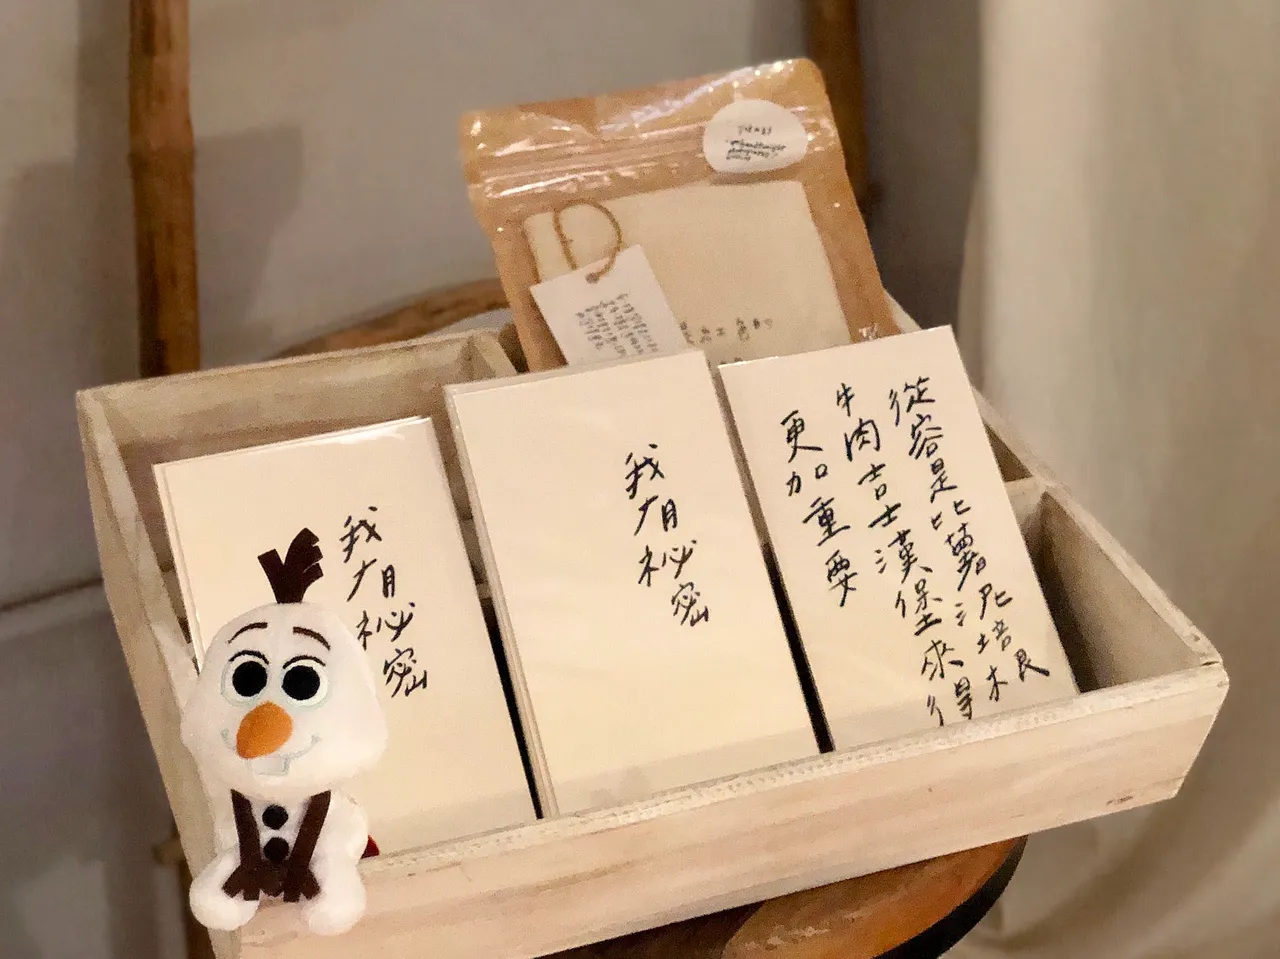 我有祕密
我有祕密
從容是比薯泥培根
牛肉吉士漢堡來得
更加重要